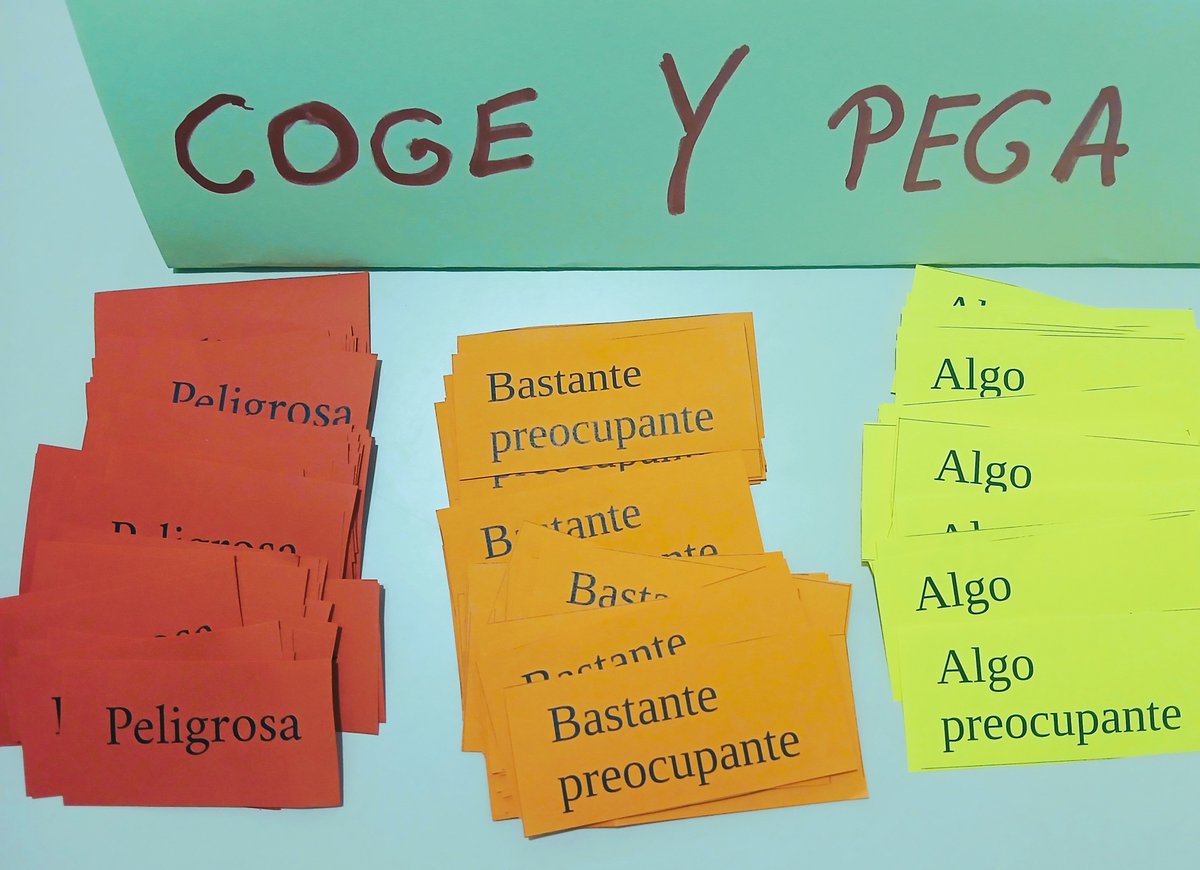 COGE Y PEGA
Peligrosa
Peligrosa
Peligrosa
Bastante
preocupante
Bastante
Bastante
Bastante
preocupante
Algo
Algo
Algo
Algo
preocupante